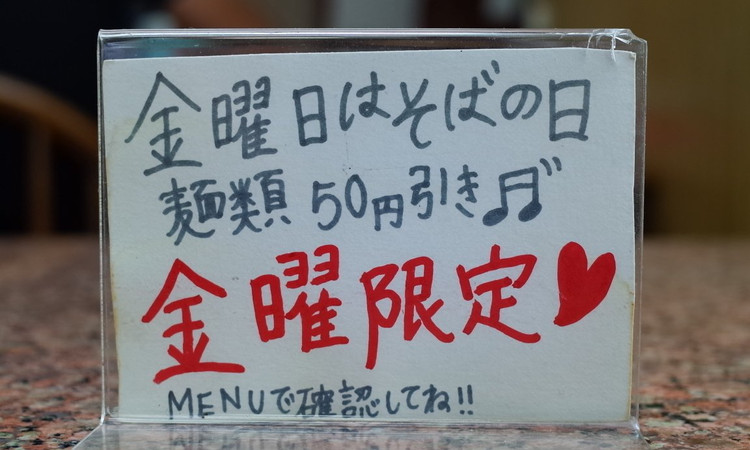 金曜日はそばの日
麺類 50円引き♫
金曜限定♥
MENUで確認してね!!